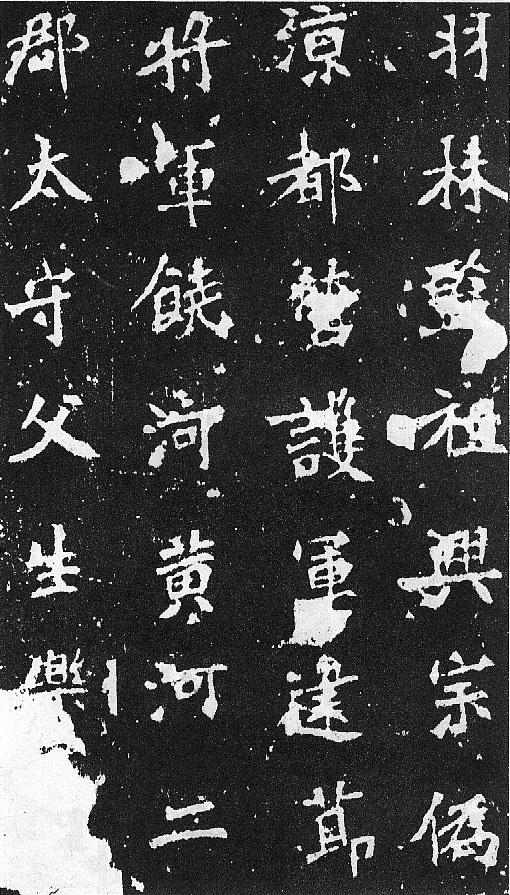 羽林監祖興宗僞
涼都營護軍建莭
將軍饒河黃河二
郡太守父生樂